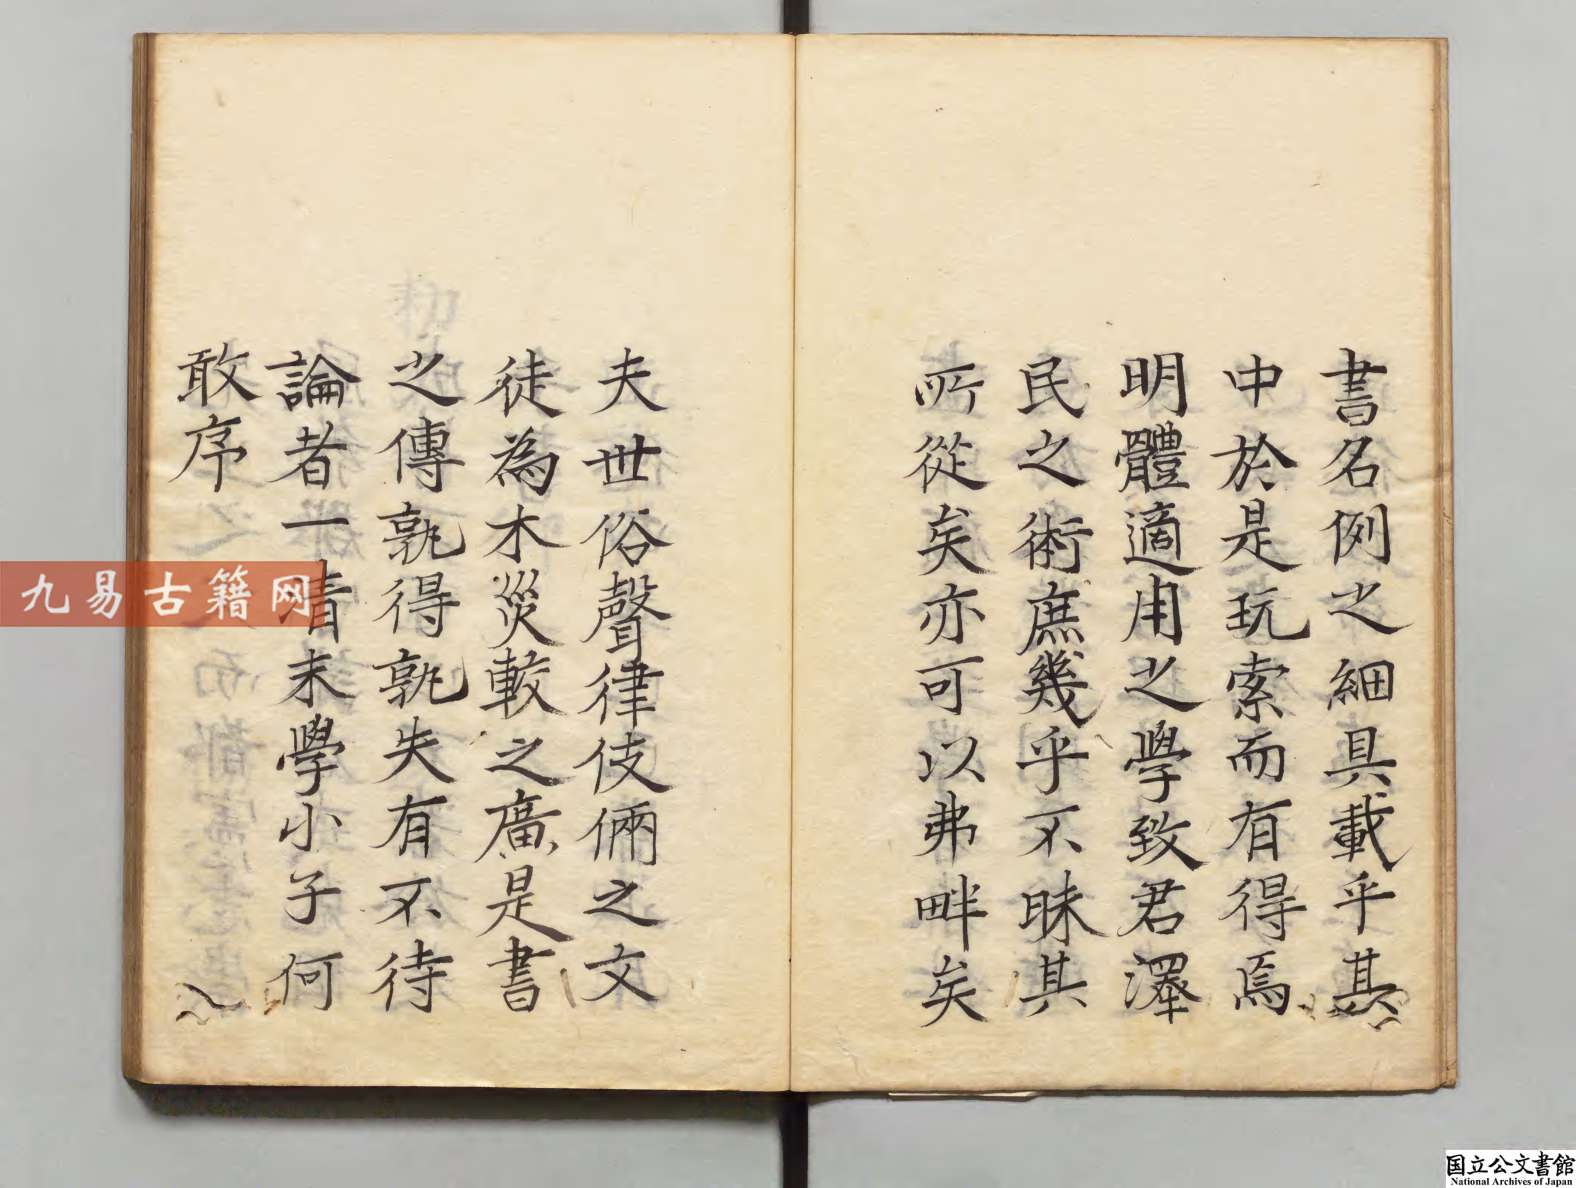 書名例之細具載乎其
中於是玩索而有得焉
明體適用之學致君澤
民之術庶幾乎不昧其
所從矣亦可以弗畔矣
夫世俗聲律伎倆之文
徒為木災較之廣是書
之傳孰得孰失有不待
論者一清末學小子何
敢序
九易古籍网
国立公文書館
National Archives of Japan